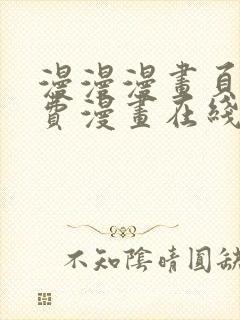 漫漫漫畫頁
費漫畫在綫
不知陰晴圓缺